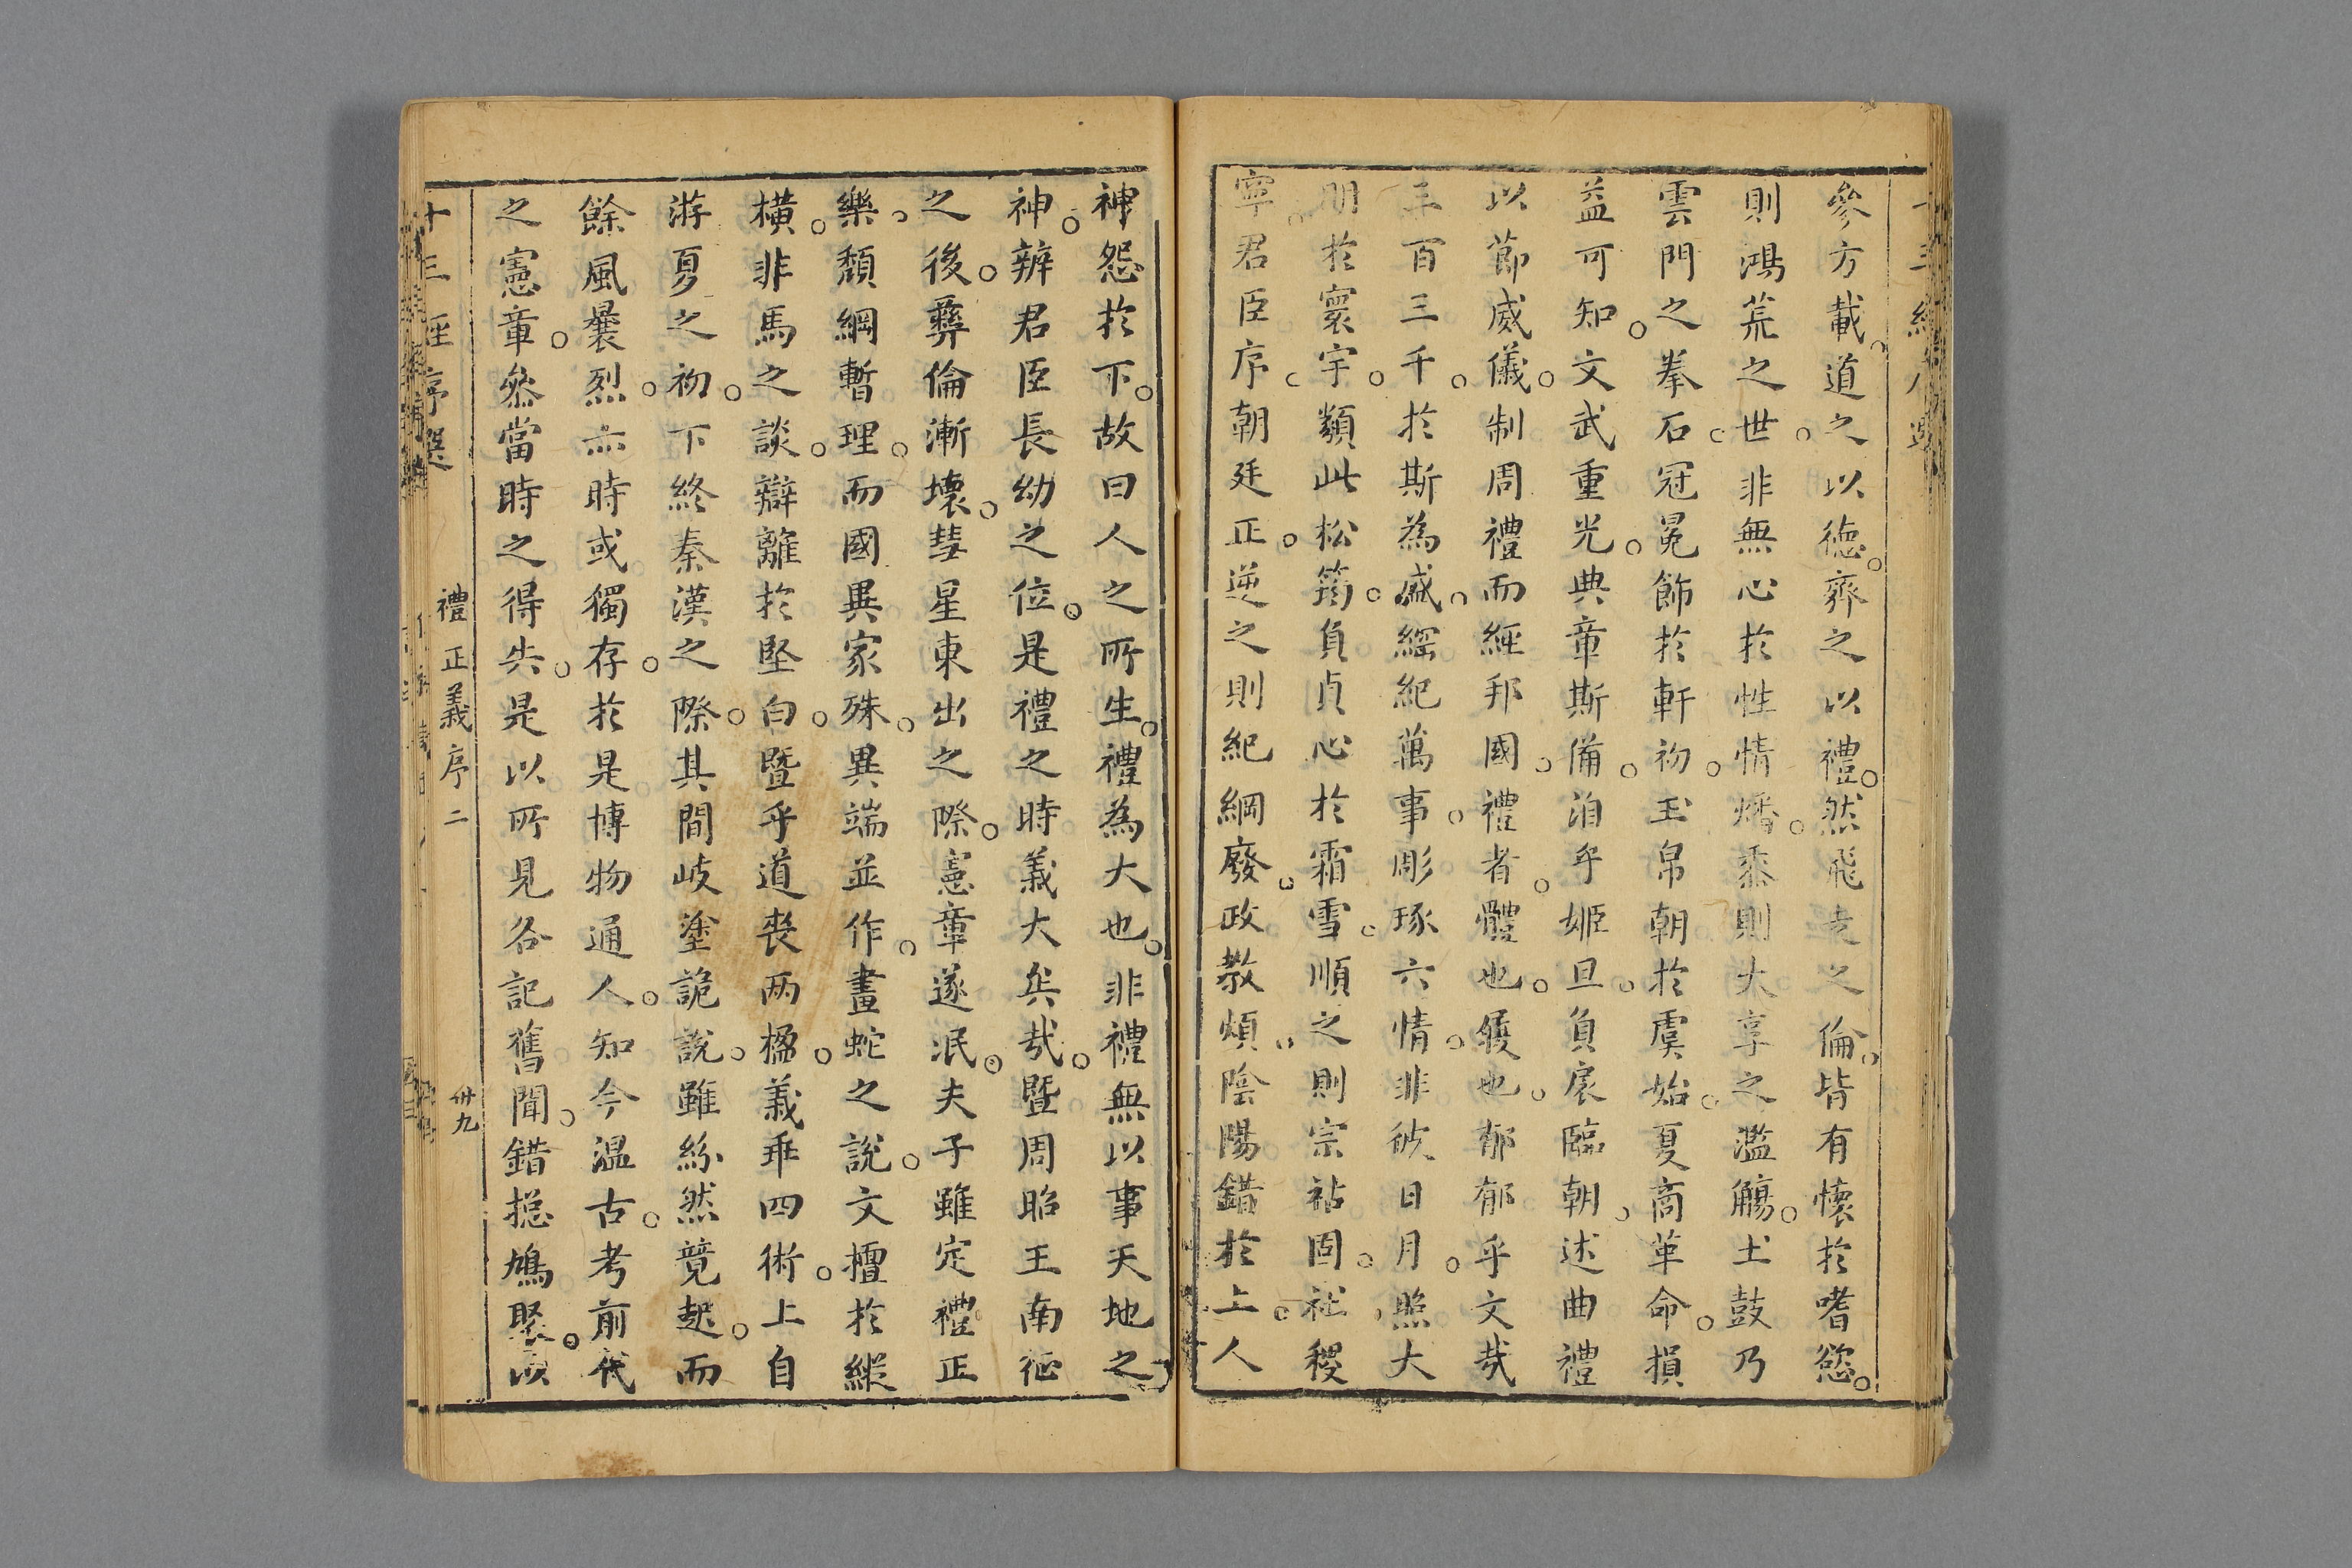 參方載道之以徳齊之以禮然飛走之倫皆有懷於嗜慾
則鴻荒之世非無心於性情燔黍則大享之濫觴土鼓乃
雲門之拳石冠冕飾於軒初玉帛朝於虞始夏商革命損
益可知文武重光典章斯備洎乎姬旦負扆臨朝述曲禮
以節威儀制周禮而經邦國禮者體也履也郁郁乎文哉
三百三千於斯為盛綱紀萬事彫琢六情非彼日月照大
明於寰宇類此松筠負貞心於霜雪順之則宗祏固社稷
寧君臣序朝廷正逆之則紀綱廢政教煩陰陽錯於上人
神怨於下故曰人之所生禮為大也非禮無以事天地之
神辨君臣長幼之位是禮之時義大矣哉暨周昭王南征
之後彝倫漸壞彗星東出之際憲章遂泯夫子雖定禮正
樂頽綱暫理而國異家殊異端並作畫蛇之說文擅於縱
橫非馬之談辯離於堅白暨乎道喪两楹義乖四術上自
游夏之初下終秦漢之際其間岐塗詭說雖紛然競起而
餘風曩烈亦時或獨存於是博物通人知今温古考前代
之憲章叅當時之得失是以所見各記舊聞錯揔鳩聚以
十三經序選
禮正義序二
卅九